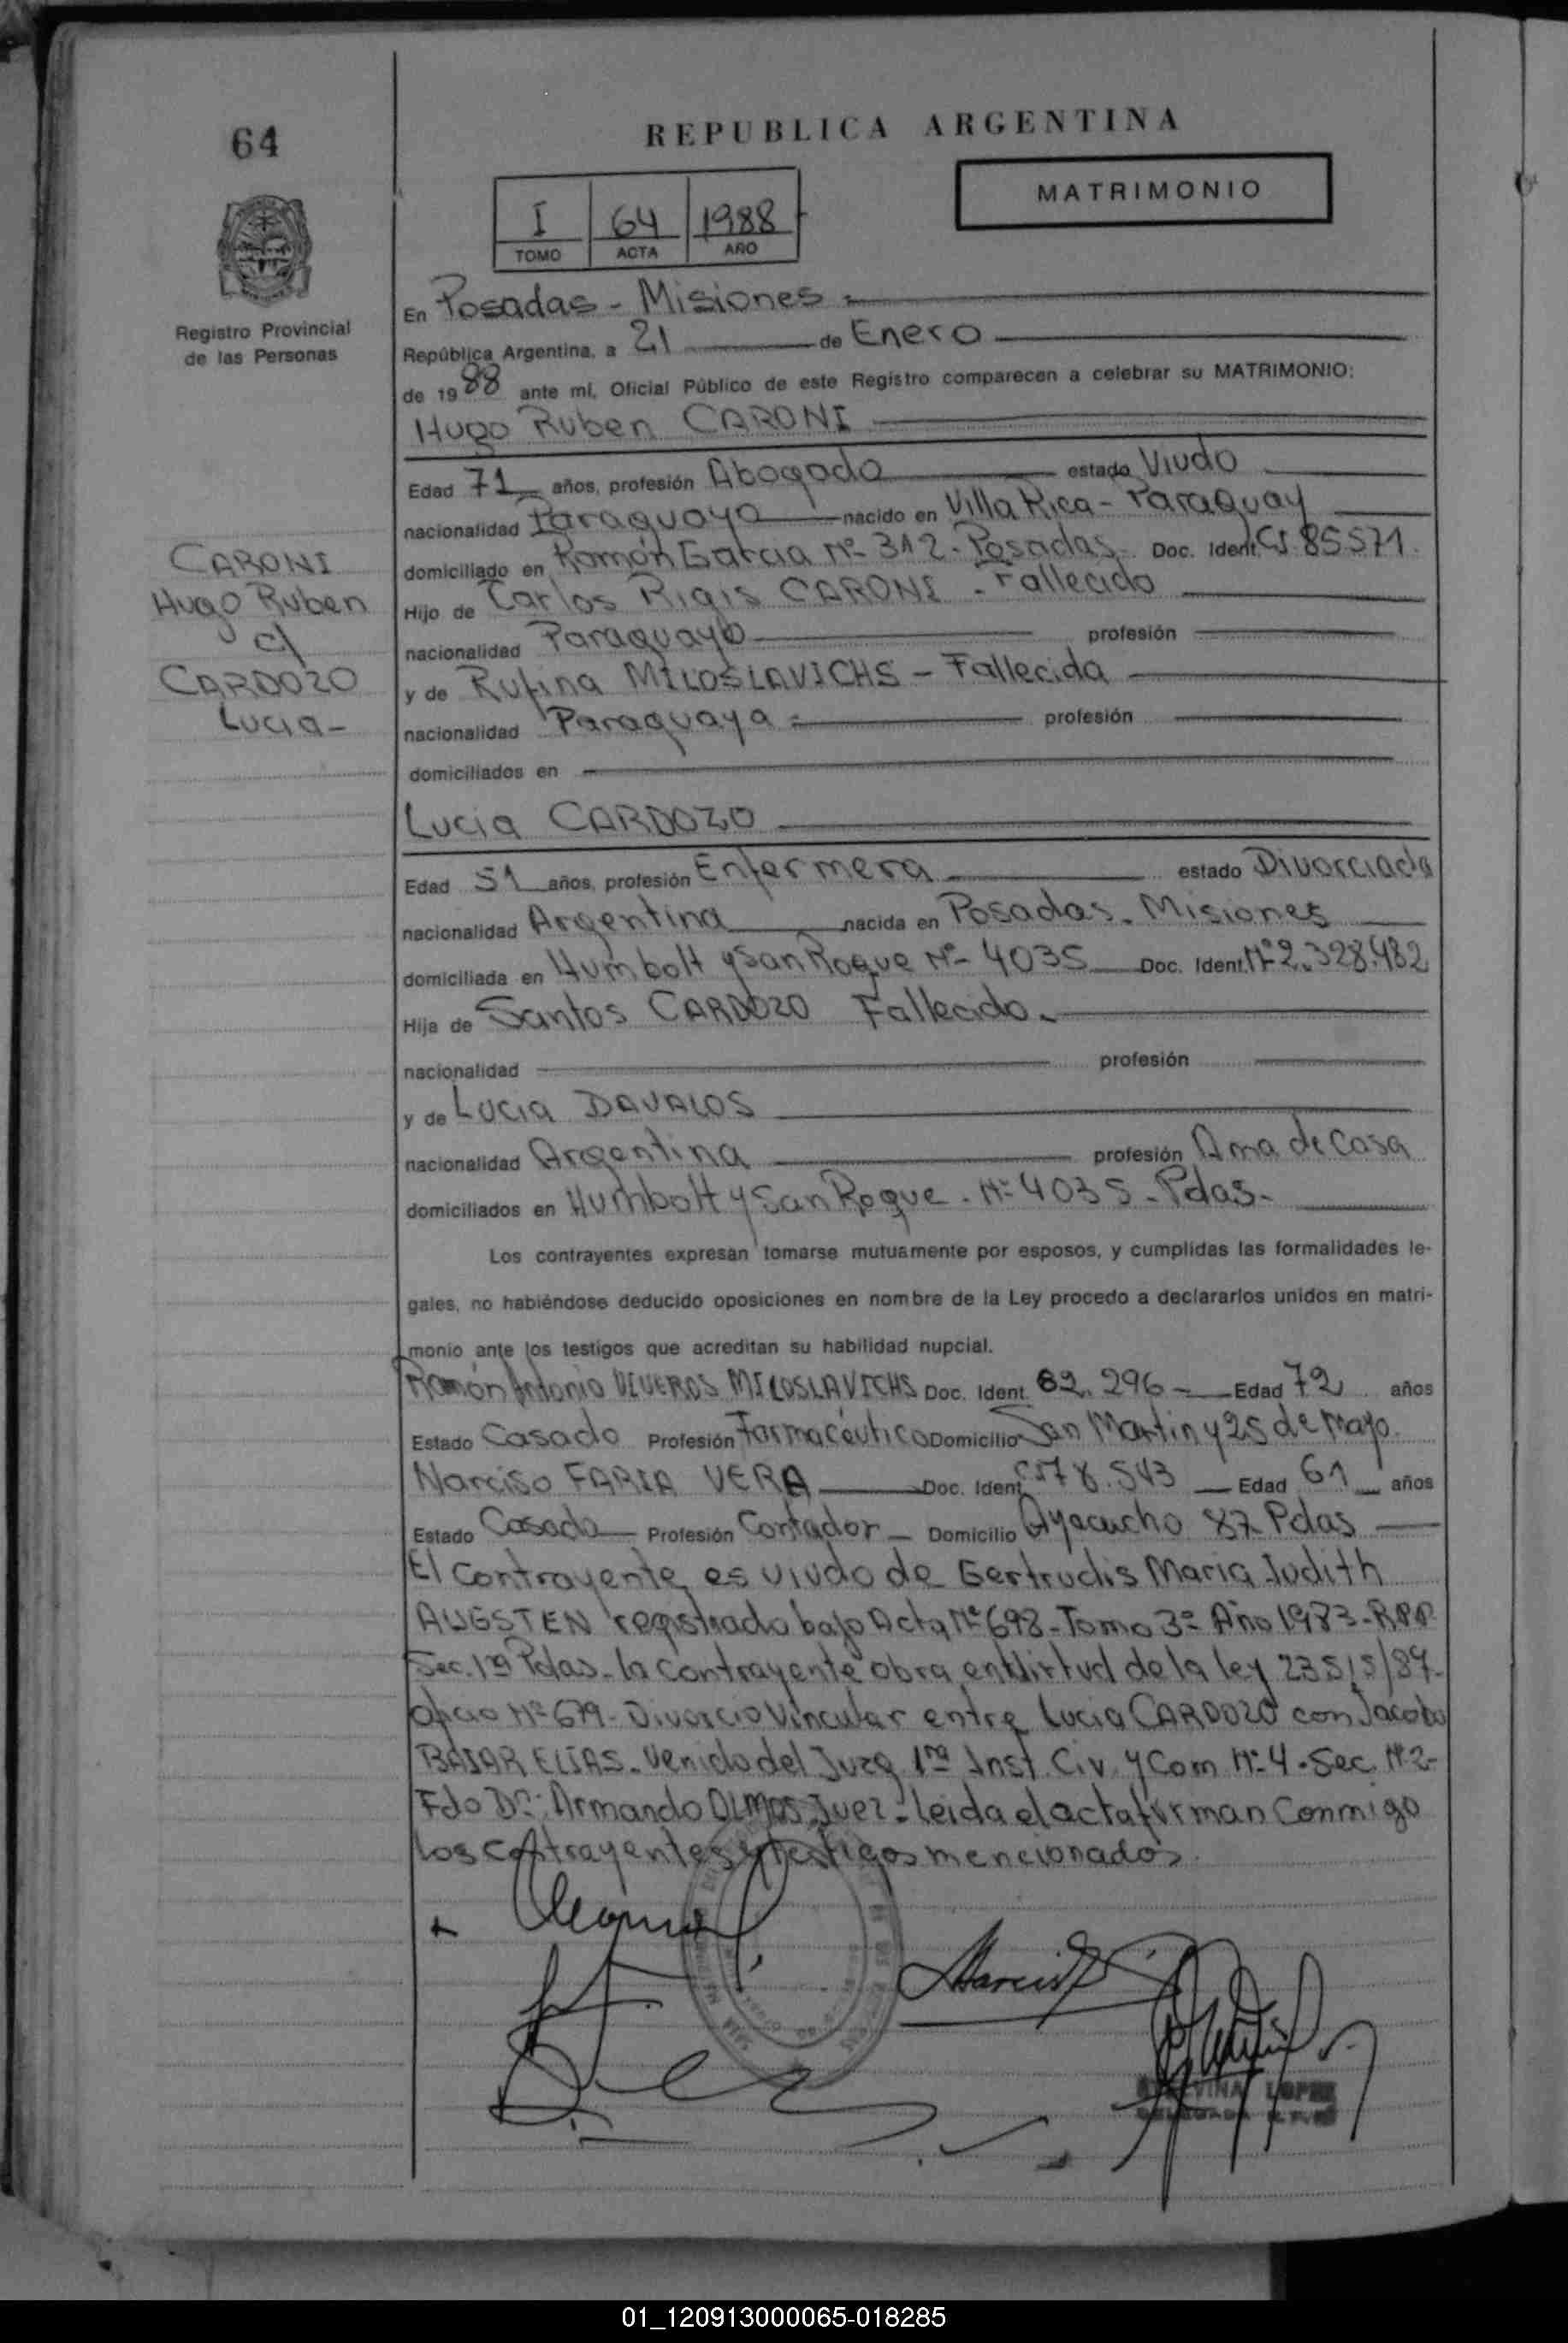 64
REPUBLICA ARGENTINA
MATRIMONIO
I 64 1988
TOMO ACTA AÑO
Registro Provincial
de las Personas
En Posadas - Misiones -
República Argentina, a 21 de Enero
de 1988 ante mí, Oficial Público de este Registro comparecen a celebrar su MATRIMONIO:
Hugo Ruben CARONI
Edad 71 años, profesión Abogado estado Viudo
nacionalidad Paraguaya nacido en Villa Rica - Paraguay
domiciliado en Ramón Garcia Nº 312 - Posadas - Doc. Ident. CI 85571.
Hijo de Carlos Rigis CARONI - Fallecido
nacionalidad Paraguayo profesión
y de Rufina MILOSLAVICHS - Fallecida
nacionalidad Paraguaya - profesión
domiciliados en
CARONI
Hugo Ruben
c/
CARDOZO
Lucia -
Lucia CARDOZO
Edad 51 años, profesión Enfermera estado Divorciada
nacionalidad Argentina nacida en Posadas - Misiones
domiciliada en Humbolt y San Roque Nº 4035 Doc. Ident. Nº 2.328.482
Hija de Santos CARDOZO Fallecido -
nacionalidad profesión
y de Lucia DAVALOS
nacionalidad Argentina profesión Ama de Casa
domiciliados en Humbolt y San Roque - Nº 4035 - Pdas -
Los contrayentes expresan tomarse mutuamente por esposos, y cumplidas las formalidades le-
gales, no habiéndose deducido oposiciones en nombre de la Ley procedo a declararlos unidos en matri-
monio ante los testigos que acreditan su habilidad nupcial.
Ramón Antonio VIVEROS MILOSLAVICHS Doc. Ident. 82.296 - Edad 72 años
Estado Casado Profesión Farmacéutico Domicilio San Martin y 25 de Mayo.
Narciso FARIA VERA Doc. Ident. CI 78.543 Edad 61 años
Estado Casado Profesión Contador - Domicilio Ayacucho 87 Pdas
El Contrayente es viudo de Gertrudis Maria Judith
AUGSTEN registrado bajo Acta Nº 698 - Tomo 3º Año 1983 - RPP
Sec. 1ª Pdas - la contrayente obra en Virtud de la ley 23515/87 -
oficio Nº 679 - Divorcio Vincular entre Lucia CARDOZO con Jacobo
BAJAR ELIAS - Venido del Juzg. 1ra Inst. Civ. y Com Nº 4 - Sec. Nº 2 -
Fdo Dr: Armando OLMOS, Juez - leida el acta firman Conmigo
los contrayentes y testigos mencionados.
LOPEZ
01_120913000065-018285